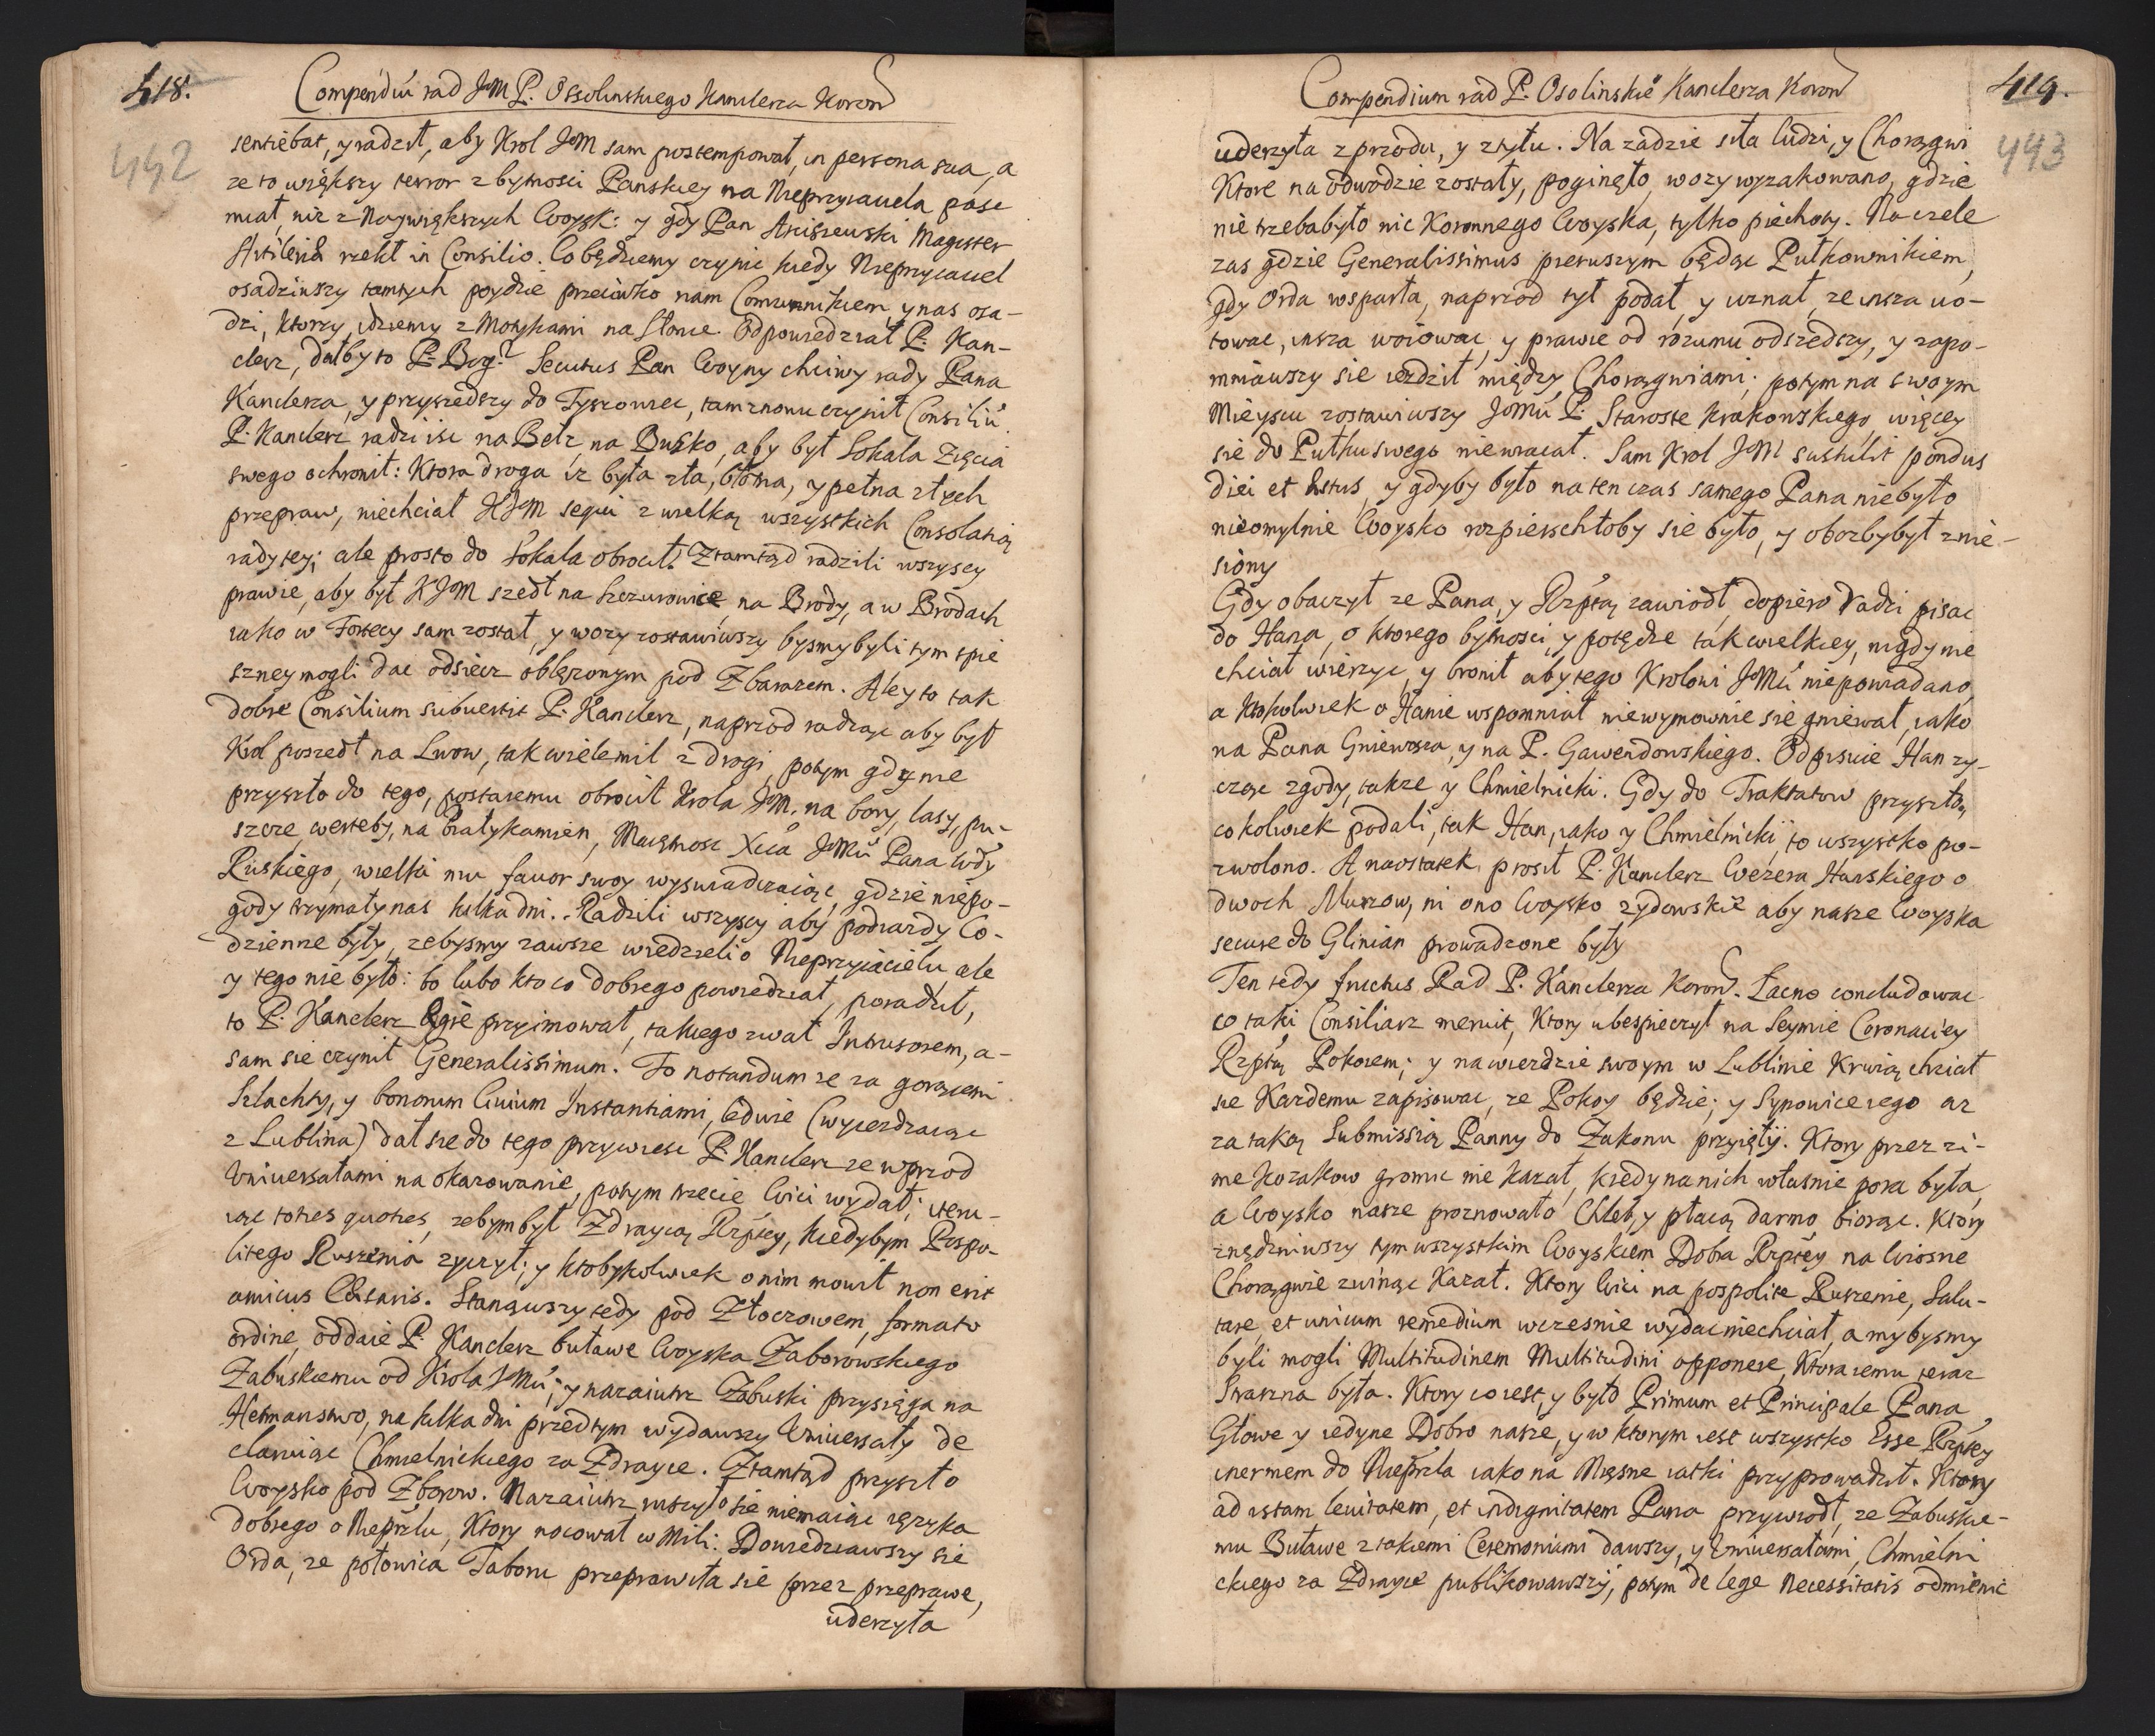 418.
Compendiū rad JM P. Ossolinskiego Kanclerza Koron
442
sentiebat, y radził, aby Krol JM sam postempował, in persona sua, a
ze to większy terror z bytnosci Panskiey na Nieprzyiaciela pasc
miał, niz z Naywiększych Woysk: y gdy Pan Arciszewski Magister
Artileriæ rzekł in Consilio. Co będziemy czynic kiedy Nieprzyiaciel
osadziwszy tamtych poydzie przeciwko nam Communikiem, y nas osa-
dzi, ktorzy idziemy z Motykami na Słonce. Odpowiedział P. Kan-
clerz, dałby to P. Bog? Secutus Pan Woyny chciwy rady Pana
Kanclerza, y przyszedszy do Tyszowiec, tam znowu czynił Consiliū.
P. Kanclerz radzi isc na Bełz, na Busko, aby był Sokala Zięcia
swego ochronił: Ktora droga iz była zła, błotna, y pełna złych
przepraw, niechciał KJM sequi z wielką wszystkich Consolatią
rady tey; ale prosto do Sokala obrocił. Ztamtąd radzili wszyscy
prawie, aby był KJM szedł na Szczurowice, na Brody, a w Brodach
iako w Fortecy sam został, y wozy zostawiwszy bysmy byli tym spie
szney mogli dac odsiecz oblęzonym pod Zbarazem. Ale y to tak
dobre Consilium subuertit P. Kanclerz, naprzod radząc aby był
Krol poszedł na Lwow, tak wiele mil z drogi, potym gdy nie
przyszło do tego, postaremu obrocił Krola JM. na bory, lasy, pu-
szcze, werteby, na Białykamien, Maiętnosc Xcia JMū Pana Wdy
Ruskiego, wielki mu fauor swoy wyswiadczaiąc, gdzie niepo-
gody trzymały nas kilka dni. Radzili wszyscy aby podiazdy Co-
dzienne były, zebysmy zawsze wiedzieli o Nieprzyiacielu, ale
y tego nie było: bo lubo kto co dobrego powiedział, poradził,
to P. Kanclerz ægre przyimował, takiego zwał Intrusorem, a-
sam sie czynił Generalissimum. To notandum ze za gorącemi
Szlachty, y bonorum Ciuium Instantiami, ledwie (wyiezdzaiąc
z Lublina) dał sie do tego przywiesc P. Kanclerz ze wprzod
Vniuersałami na okazowanie, potym trzecie Wici wydał; iteru-
iąc toties quoties, zebym był Zdraycą Rzptey, kiedybym Pospo-
litego Ruszenia zyczył; y ktobykolwiek o nim mowił non erit
amicus Cæsaris. Stanąwszy tedy pod Złoczowem, formato
ordine, oddaie P. Kanclerz buławe Woyska Zaborowskiego
Zabuskiemu od Krola JMū; y nazaiutrz Zabuski przysięga na
Hetmanstwo, na kilka dni przedtym wydawszy Vniuersały de
clariąc Chmielnickiego za Zdrayce. Ztamtąd przyszło
Woysko pod Zborow. Nazaiutrz ruszyło sie niemaiąc ięzyka
dobrego o Nieprzlu, Ktory nocował w Mili: Dowiedziawszy sie
Orda, ze połowica Taboru przeprawiła sie przez przeprawe,
uderzyła
419.
Compendium rad P. Osolinskie Kanclerza Koron
443
uderzyła z przodu, y z tyłu. Na zadzie siła ludzi, y Chorągwi
Ktore na odwodzie zostały, poginęło, wozy wyrąbowano, gdzie
nie trzeba było nic Koronnego Woyska, tylko piechoty. Na czele
zas gdzie Generalissimus pierwszym będąc Pułkownikiem,
gdy Orda wsparła, naprzod tył podał, y uznał, ze insza wo-
towac, insza woiowac, y prawie od rozumu odszedszy, y zapo-
mniawszy sie iezdził między Chorągwiami; potym na swoym
Mieyscu zostawiwszy JoMū P. Staroste Krakowskiego, więcey
sie do Pułku swego niewracał. Sam Krol JoM sustulit pondus
diei et æstus, y gdyby było na ten czas samego Pana niebyło
nieomylnie Woysko rozpierschłoby sie było, y oboz by był znie-
siony
Gdy obaczył ze Pana, y Rzptą zawiodł, dopiero radzi pisac
do Hana, o ktorego bytnosci, y potędze tak wielkiey, nigdy nie
chciał wierzyc, y bronił aby tego Krolowi JMū niepowiadano,
a ktokolwiek o Hanie wspomniał niewymownie sie gniewał, iako
na Pana Gniewosza, y na P. Gawendowskiego. Odpisuie Han zy-
cząc zgody, takze y Chmielnicki. Gdy do Traktatow przyszło,
cokolwiek podali, tak Han, iako y Chmielnicki, to wszystko po-
zwolono. A naostatek prosił P. Kanclerz Wezera Hanskiego o
dwoch Murzow, ni ono Woysko zydowskie aby nasze Woyska
secure do Glinian prowadzone były
Ten tedy fructus Rad P. Kanclerza Koron. Łacno concludowac
co taki Consiliarz meruit, Ktory ubespieczył na Seymie Coronaciey
Rzptą Pokoiem; y na wierdzie swoym w Lublinie Krwią chciał
sie Kazdemu zapisowac, ze Pokoy będzie; y Synowice iego az
za taką Submissią Panny do Zakonu przyięły. Ktory przez zi-
me Kozakow gromic nie kazał, kiedy na nich własnie pora była,
a Woysko nasze proznowało Chleb, y płacą darmo biorąc. Ktory
znędzniwszy tym wszystkim Woyskiem Dobra Rzptey na Wiosne
Chorągwie zwinąc Kazał. Ktory Wici na pospolite Ruszenie, Salu-
tare, et unicum remedium wczesnie wydac niechciał, a mybysmy
byli mogli Multitudinem Multitudini opponere, Ktora iemu teraz
Straszna była. Ktory co iest, y było Primum et Principale Pana
Głowe y iedyne Dobro nasze, y w ktorym iest wszystko Esse Rzptey
inermem do Nieprzla iako na Mięsne iatki przyprowadził. Ktory
ad istam leuitatem, et indignitatem Pana przywiodł, ze Zabuskie-
mu Buławe z takiemi Ceremoniami dawszy, y Vniuersałami, Chmielni
ckiego za Zdrayce publikowawszy, potym de lege Necessitatis odmienic